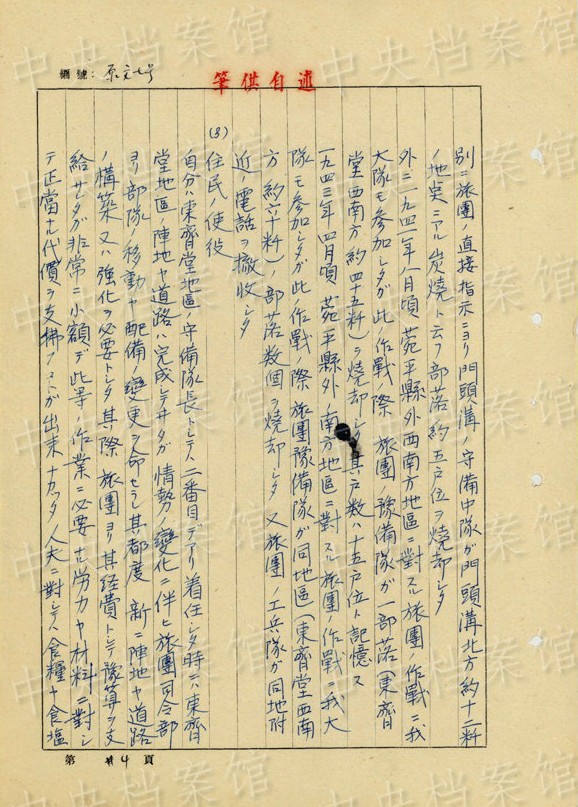 中央档案馆
編號：原文七号
筆供自述
別ニ旅團ノ直接指示ニヨリ門頭溝ノ守備中隊ガ門頭溝北方約十二粁
ノ地点ニアル炭焼ト云フ部落約五戸位ヲ焼却シタ
外ニ一九四二年八月頃宛平縣外西南方地區ニ對スル旅團ノ作戰ニ我
大隊モ参加シタガ此ノ作戰ノ際旅團豫備隊ガ一部落（東齊
堂西南方約四十五粁）ヲ焼却シタ其戸数ハ十五戸位ト記憶ス
一九四三年四月頃宛平縣外南方地區ニ對スル旅團ノ作戰ニ我大
隊モ参加シタガ此ノ作戰ノ際旅團豫備隊ガ同地區（東齊堂西南
方約六十粁）ノ部落数個ヲ焼却シタ又旅團ノ工兵隊ガ同地附
近ノ電話ヲ撤收シタ
(8) 住民ノ使役
自分ハ東齊堂地區ノ守備隊長トシテハ二番目デアリ着任シタ時ニハ東齊
堂地區ノ陣地ヤ道路ハ完成シテヰタガ情勢ノ變化ニ伴ヒ旅團司令部
ヨリ部隊ノ移動ヤ配備ノ變更ヲ命ゼラレ其都度新ニ陣地ヤ道路
ノ構築又ハ強化ヲ必要トシタ其際旅團ヨリ其経費トシテ豫算ヲ支
給サレタガ非常ニ小額デ此等ノ作業ニ必要ナ労力ヤ材料ニ對シ
テ正當ナ代價ヲ支拂フコトガ出来ナカッタ人夫ニ對シテハ食糧ヤ食塩
第 14 頁